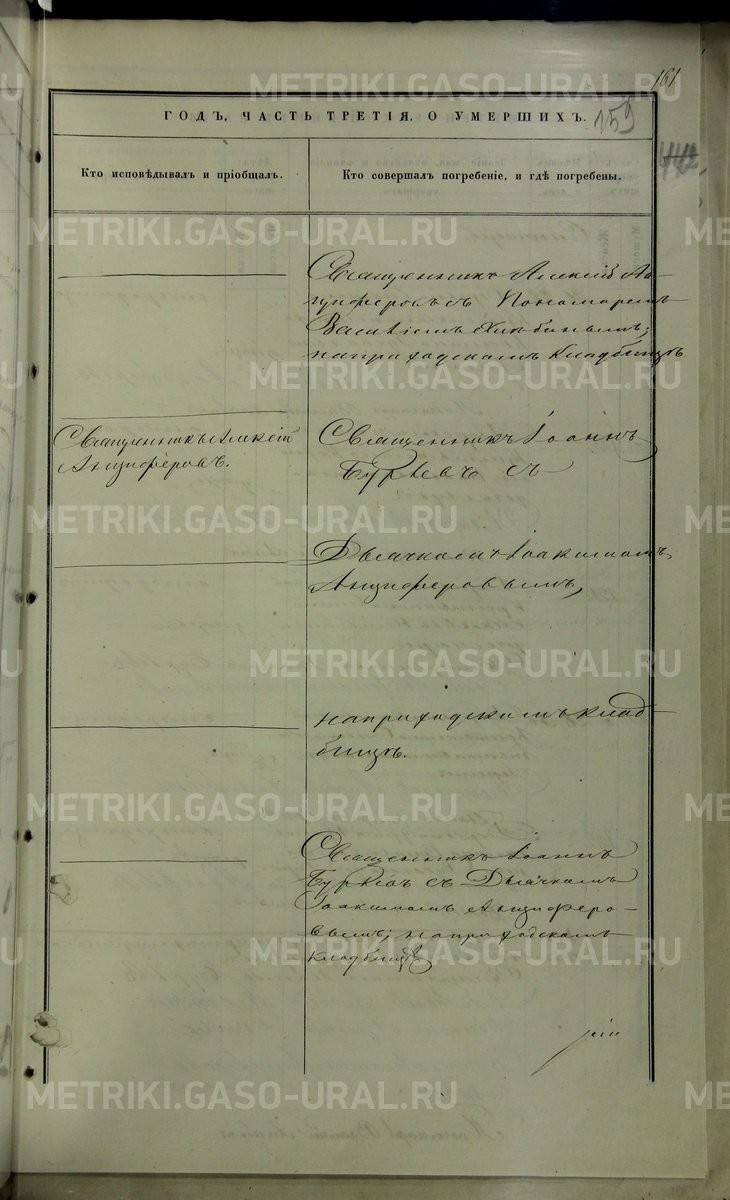 161
ГОДЪ, ЧАСТЬ ТРЕТІЯ, О УМЕРШИХЪ.
159
Кто исповѣдывалъ и пріобщалъ.
Кто совершалъ погребеніе, и гдѣ погребены.
METRIKI.GASO-URAL.RU
Священникъ Алексій Ан-
циферовъ съ Пономаремъ
Василіемъ
на приходскомъ кладбищѣ
Священникъ Алексій
Анциферовъ.
Священникъ Іоаннъ
съ
Дьячкомъ Іоакимомъ
Анциферовымъ,
на приходскомъ клад-
бищѣ.
Священникъ Іоаннъ
съ Дьячкомъ
Іоакимомъ Анциферо-
вымъ; на приходскомъ
кладбищѣ